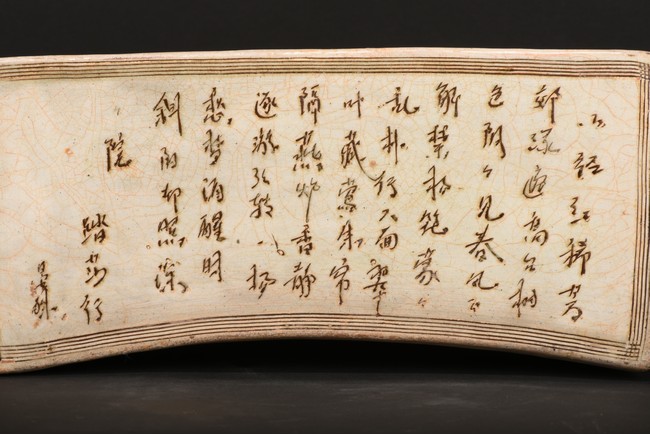 小徑紅稀芳
郊綠遍高台樹
色陰々見春風不
解禁楊花蒙々
乱扑行人面翠
叶藏鶯朱帘
隔燕炉香静
逐游絲轉一場
愁夢酒醒時
斜陽却照深
々院
踏莎行